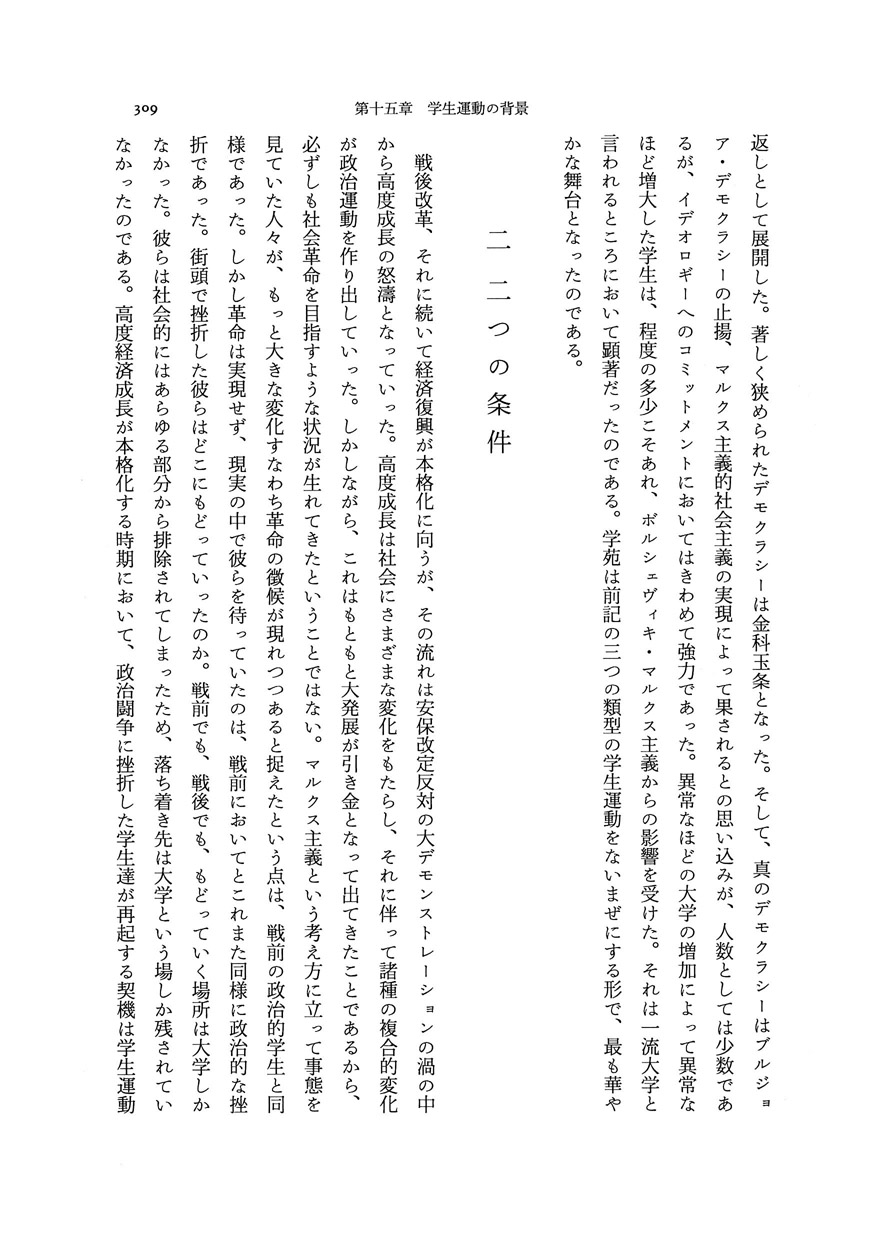 309
第十五章　学生運動の背景
返しとして展開した。著しく狭められたデモクラシーは金科玉条となった。そして、真のデモクラシーはブルジョ
ア・デモクラシーの止揚、マルクス主義的社会主義の実現によって果されるとの思い込みが、人数としては少数であ
るが、イデオロギーへのコミットメントにおいてはきわめて強力であった。異常なほどの大学の増加によって異常な
ほど増大した学生は、程度の多少こそあれ、ボルシェヴィキ・マルクス主義からの影響を受けた。それは一流大学と
言われるところにおいて顕著だったのである。学苑は前記の三つの類型の学生運動をないまぜにする形で、最も華や
かな舞台となったのである。
二　二つの条件
戦後改革、それに続いて経済復興が本格化に向うが、その流れは安保改定反対の大デモンストレーションの渦の中
から高度成長の怒濤となっていった。高度成長は社会にさまざまな変化をもたらし、それに伴って諸種の複合的変化
が政治運動を作り出していった。しかしながら、これはもともと大発展が引き金となって出てきたことであるから、
必ずしも社会革命を目指すような状況が生れてきたということではない。マルクス主義という考え方に立って事態を
見ていた人々が、もっと大きな変化すなわち革命の徴候が現れつつあると捉えたという点は、戦前の政治的学生と同
様であった。しかし革命は実現せず、現実の中で彼らを待っていたのは、戦前においてとこれまた同様に政治的な挫
折であった。街頭で挫折した彼らはどこにもどっていったのか。戦前でも、戦後でも、もどっていく場所は大学しか
なかった。彼らは社会的にはあらゆる部分から排除されてしまったため、落ち着き先は大学という場しか残されてい
なかったのである。高度経済成長が本格化する時期において、政治闘争に挫折した学生達が再起する契機は学生運動